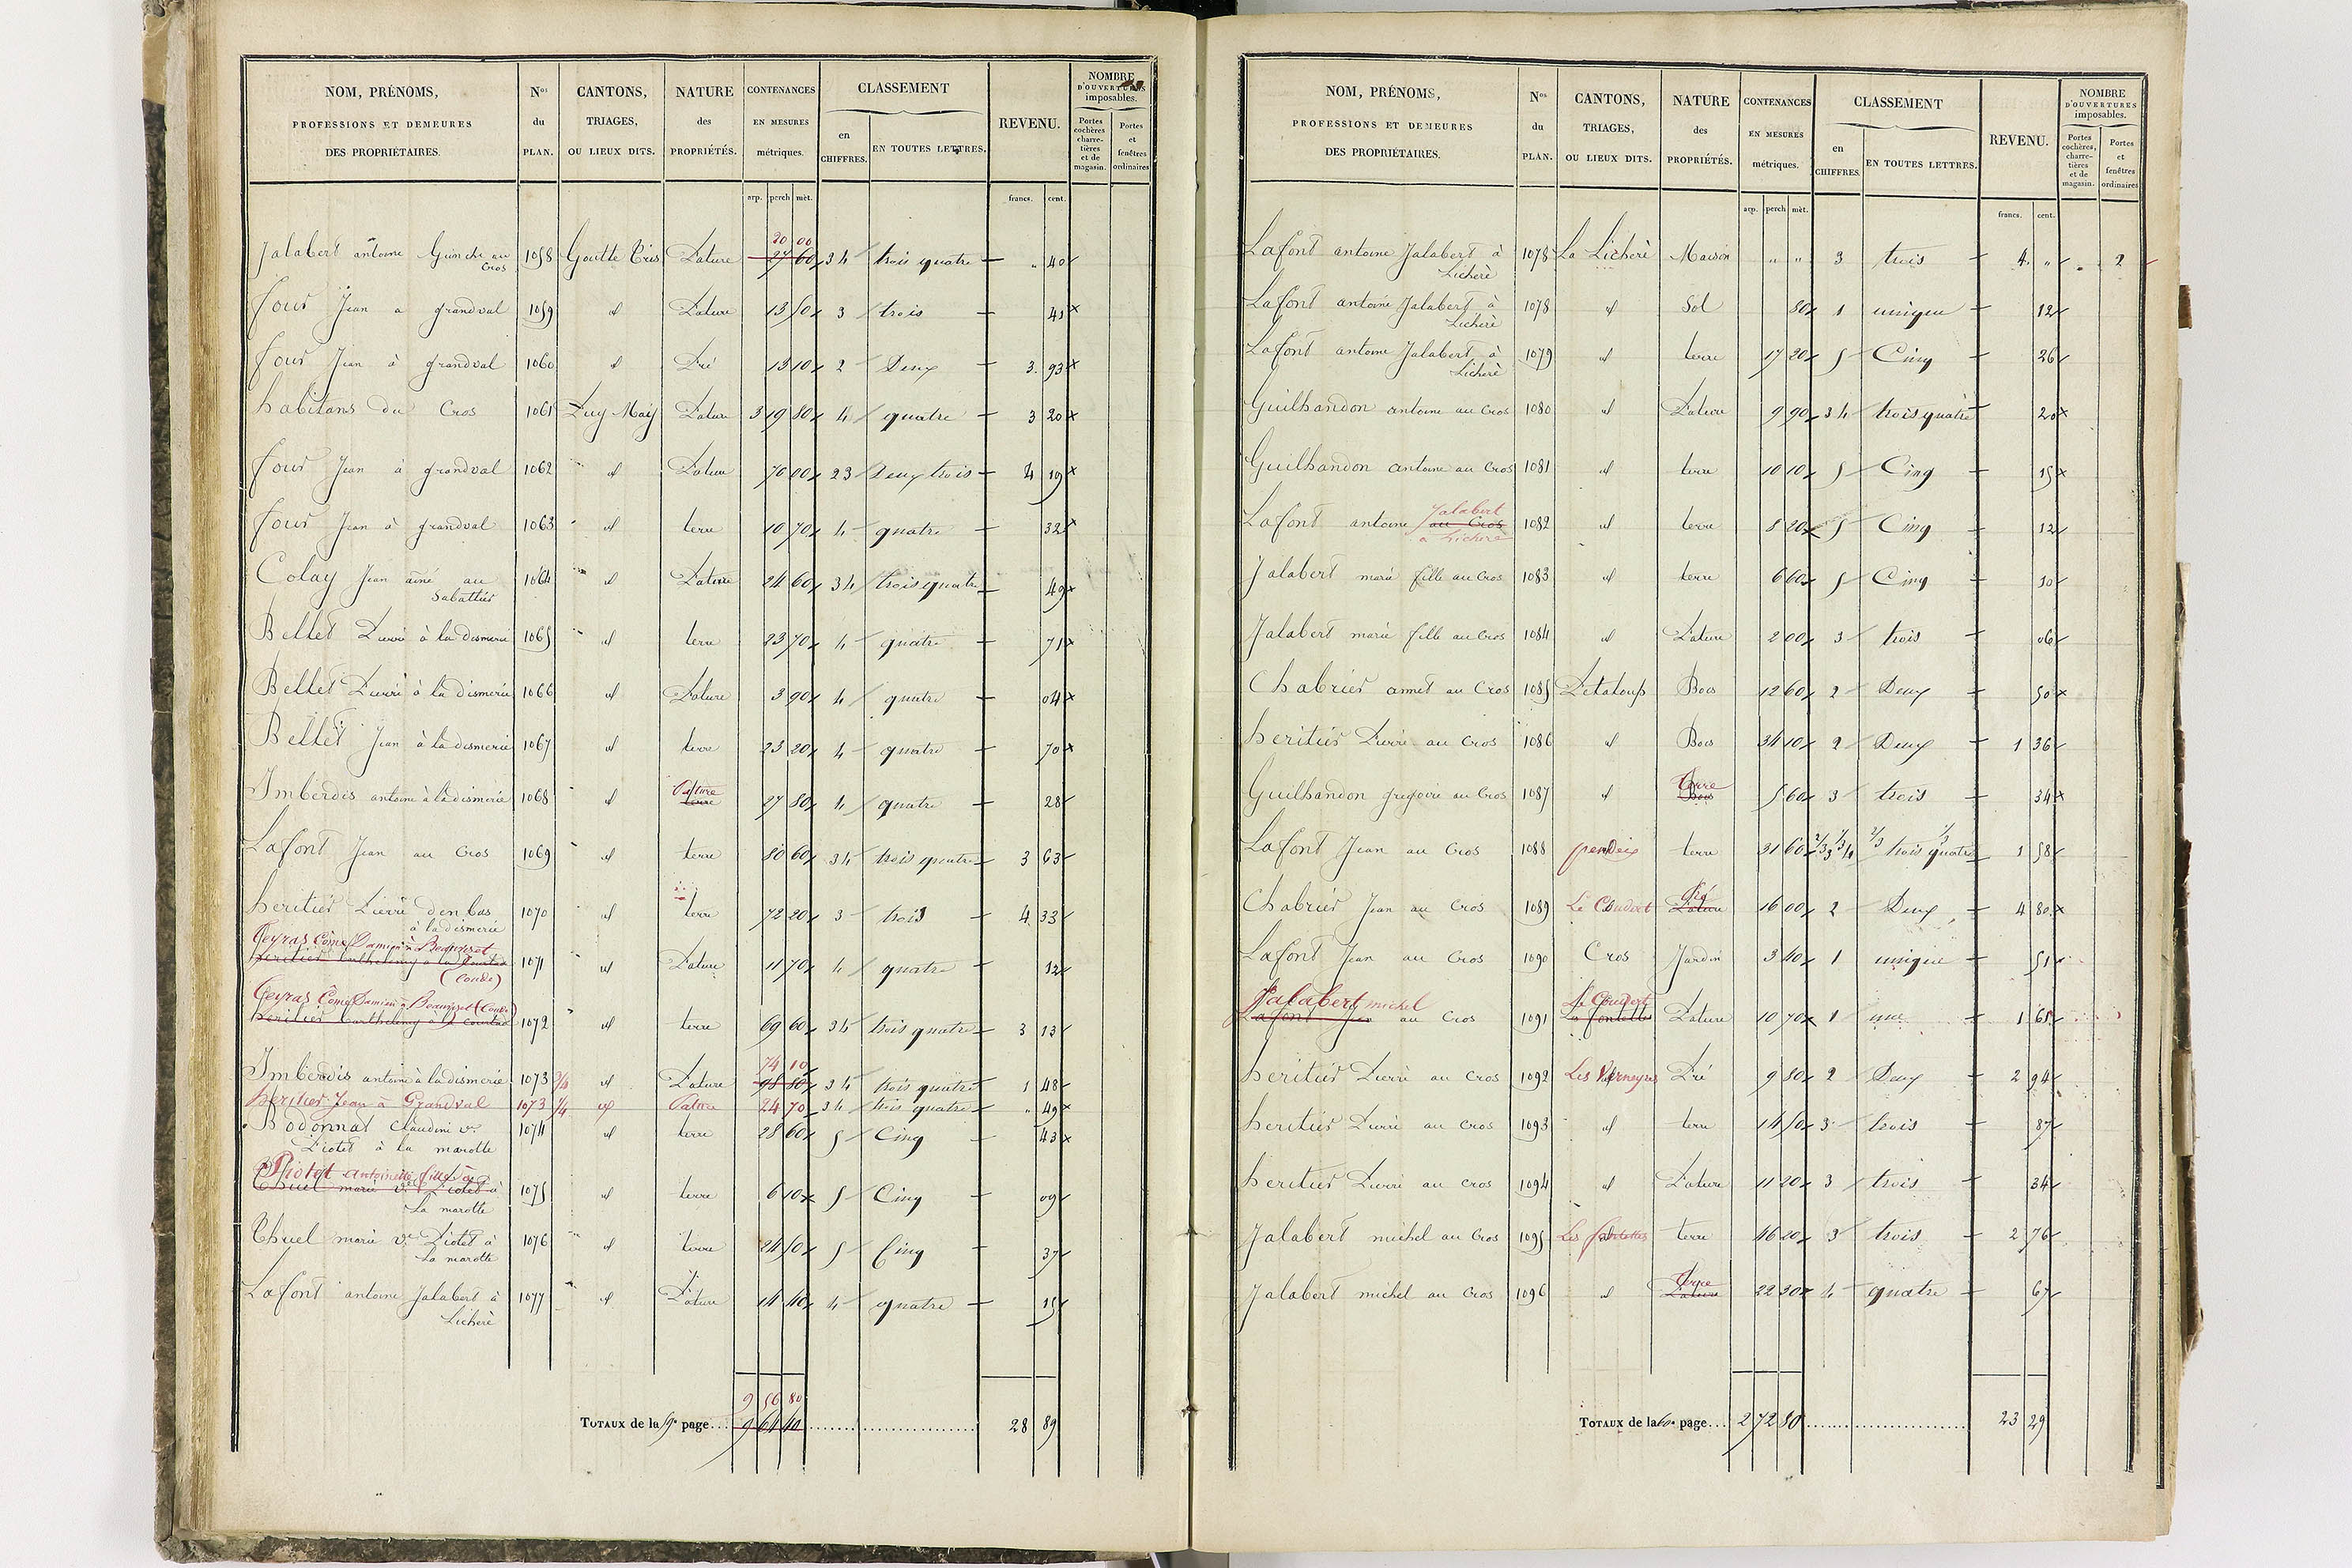 NOM, PRÉNOMS, PROFESSIONS ET DEMEURES DES PROPRIÉTAIRES. Nos du PLAN. CANTONS, TRIAGES, OU LIEUX DITS. NATURE des PROPRIÉTÉS. CONTENANCES EN MESURES métriques. CLASSEMENT en CHIFFRES. EN TOUTES LETTRES. REVENU. NOMBRE D'OUVERTURES imposables. Portes cochères charretières et de magasin. Portes et fenêtres ordinaires
arp. perch mèt. francs. cent.
20 00
Jalabert antoine au Cros 1058 Goutte Pature 27 60 34 trois quatre " 40
four Jean a grandval 1059 id Pature 13 50 3 trois 41
four Jean à grandval 1060 id Pré 13 10 2 Deux 3 93
habitans du Cros 1061 Puy May Pature 3 19 80 4 quatre 3 20
four Jean à grandval 1062 id Pature 70 00 23 Deux trois 4 19
four Jean à grandval 1063 id terre 10 70 4 quatre 32
Colay Jean ainé au Sabattier 1064 id Pature 24 60 34 trois quatre 49
Bellet Pierre à la dismerie 1065 id terre 23 70 4 quatre 71
Bellet Pierre à la dismerie 1066 id Pature 3 90 4 quatre 04
Bellet Jean à la dismerie 1067 id terre 23 20 4 quatre 70
Pature
Imberdis antoine à la dismerie 1068 id terre 27 80 4 quatre 28
Lafont Jean au Cros 1069 id terre 80 60 34 trois quatre 3 63
heritier Pierre den bas à la dismerie 1070 id terre 72 20 3 trois 4 33
Teyras Côme Damien à Beaupret
heritier barthelemy à la Courtade 1071 id Pature 11 70 4 quatre 12
Teyras Côme Damien à Beaupret
heritier barthelemy à la Courtade 1072 id terre 69 60 34 trois quatre 3 13
74 10
Imberdis antoine à la dismerie 1073 3/4 id Pature 98 80 34 trois quatre 1 48
heritier Jean à Grandval 1073 1/4 id Pature 24 70 34 trois quatre " 49
Bodonnat Claudine ve Piotet à la marotte 1074 id terre 28 60 5 Cinq 43
Piotet antoinette fille à
Thuel marie ve Piotet à La marotte 1075 id terre 6 10 5 Cinq 09
Thuel marie ve Piotet à La marotte 1076 id terre 24 50 5 Cinq 37
Lafont antoine Jalabert à Licheré 1077 id Pature 14 40 4 quatre 15
9 56 80
TOTAUX de la 59e page 9 64 40 28 89
NOM, PRÉNOMS, PROFESSIONS ET DEMEURES DES PROPRIÉTAIRES. Nos du PLAN. CANTONS, TRIAGES, OU LIEUX DITS. NATURE des PROPRIÉTÉS. CONTENANCES EN MESURES métriques. CLASSEMENT en CHIFFRES. EN TOUTES LETTRES. REVENU. NOMBRE D'OUVERTURES imposables. Portes cochères, charretières et de magasin. Portes et fenêtres ordinaires
arp. perch mèt. francs. cent.
Lafont antoine Jalabert à Licheré 1078 La Licheré Maison " " 3 trois 4 " 2
Lafont antoine Jalabert à Licheré 1078 id Sol 80 1 unique 12
Lafont antoine Jalabert à Licheré 1079 id terre 17 20 5 Cinq 26
Guilhandon antoine au Cros 1080 id Pature 9 90 34 trois quatre 20
Guilhandon antoine au Cros 1081 id terre 10 10 5 Cinq 15
Jalabert
Lafont antoine au Cros 1082 id terre 8 20 5 Cinq 12
à Licheré
Jalabert marie fille au Cros 1083 id terre 6 60 5 Cinq 10
Jalabert marie fille au Cros 1084 id Pature 2 00 3 trois 06
Chabrier annet au Cros 1085 Petaloup Bois 12 60 2 Deux 50
heritier Pierre au Cros 1086 id Bois 34 10 2 Deux 1 36
Terre
Guilhandon gregoire au Cros 1087 id Bois 5 60 3 trois 34
Lafont Jean au Cros 1088 pendeix terre 31 60 2/3 3 1/3 4 2/3 trois 1/3 quatre 1 58
Pré
Chabrier Jean au Cros 1089 Le Coudert Pature 16 00 2 Deux 4 80
Lafont Jean au Cros 1090 Cros Jardin 3 40 1 unique 51
Jalabert michel Le Coudert
Lafont Jean au Cros 1091 La fontette Pature 10 70 1 une 1 65
heritier Pierre au Cros 1092 Les Verneyres Pré 9 80 2 Deux 2 94
heritier Pierre au Cros 1093 id terre 14 50 3 trois 87
heritier Pierre au Cros 1094 id Pature 11 20 3 trois 34
Jalabert michel au Cros 1095 Les fontettes terre 46 20 3 trois 2 76
Terre
Jalabert michel au Cros 1096 id Pature 22 30 4 quatre 67
TOTAUX de la 60e page 2 72 80 23 29